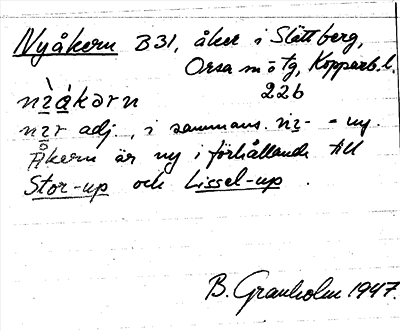 Nyåkern B31, åker i Slättberg,
Orsa sn o tg, Kopparb. l.
22b
nz̀ákərn
nzr adj., i sammans. nz- = ny.
Åkern är ny i förhållande till
Stor-up och Lissel-up.
B. Granholm 1947.